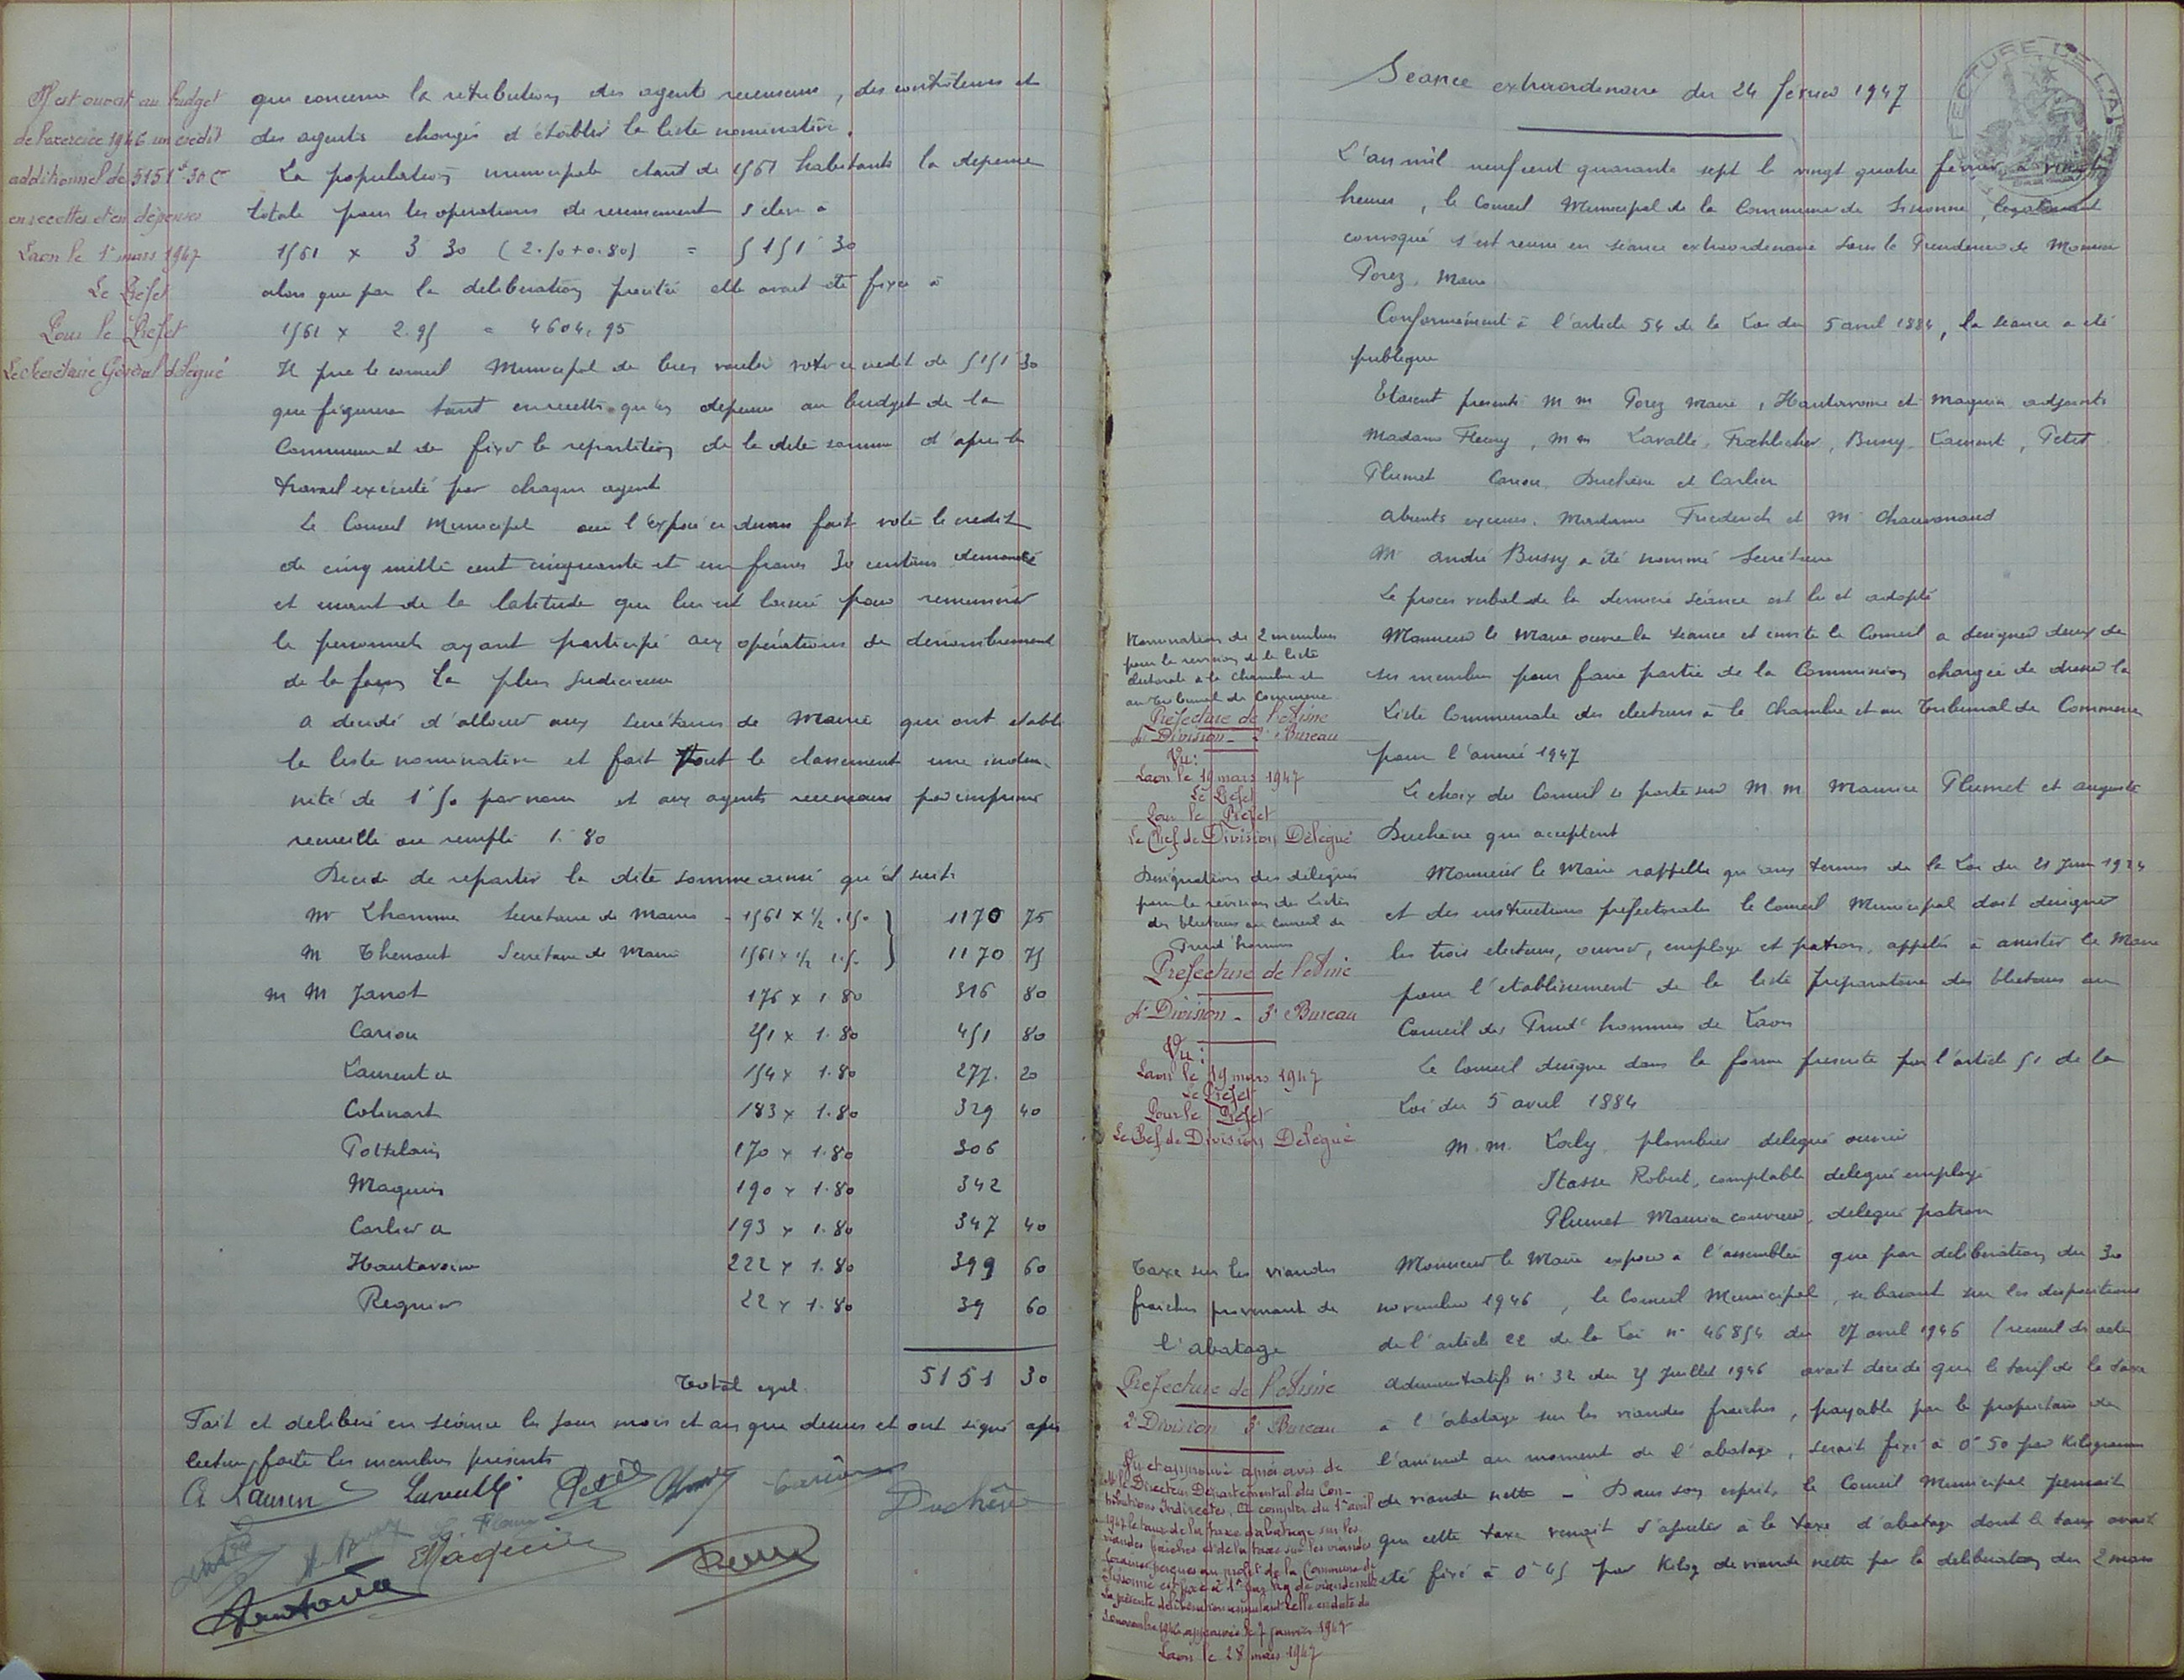 Il est ouvert au budget
de l'exercice 1946 un crédit
additionnel de 5151f 30 c
en recettes et en dépenses
Laon le 1er mars 1947
Le Préfet
Pour le Préfet
Le Secrétaire Général délégué
que concerne la retribution des agents recenseurs, des contrôleurs et
des agents chargés d'établir la liste nominative.
La population municipale étant de 1561 habitants la depense
totale pour les operations de recensement s'eleve à
1561 x 3 30 (2.50+0.80) = 5151 30
alors que par la deliberation precitée elle avait été fixée à
1561 x 2.95 = 4604,95
Il prie le conseil Municipal de bien vouloir voter ce credit de 5151 30
que figurera tant en recettes qu'en depenses au budget de la
Commune et de fixer la repartition de la dite somme d'après le
travail exécuté par chaque agent
Le Conseil Municipal ouï l'exposé ci dessus fait vote le credit
de cinq mille cent cinquante et un francs 30 centimes demandé
et usant de la latitude que lui est laissée pour remunerer
le personnel ayant participé aux opérations de denombrement
de la façon la plus judicieuse
a decidé d'allouer aux secrétaires de Mairie qui ont etabli
la liste nominative et fait tout le classement une indem-
nité de 1f50 par nom et aux agents recenseurs par imprimé
recueilli ou rempli 1.80
Decide de repartir la dite somme ainsi qu'il suit
Mr Lhomme Secretaire de Mairie - 1561 x 1/2 1.50 } 1170 75
M Thenault Secretaire de Mairie 1561 x 1/2 1.50 } 1170 75
M M Janot 176 x 1 80 316 80
Cariou 251 x 1.80 451 80
Laurent a 154 x 1.80 277. 20
Colinart 183 x 1.80 329 40
Pottelain 170 x 1.80 306
Maquin 190 x 1.80 342
Carlier a 193 x 1.80 347 40
Hautavoine 222 x 1.80 399 60
Regnier 22 x 1.80 39 60
Total egal. 5151 30
Fait et deliberé en séance les jour mois et an que dessus et ont signé après
lecture faite les membres présents
A Laurent Lavallé Petit Cariou Duchêne
Maquin
Hautavoine
PREFECTURE DE L'AISNE
Seance extraordinaire du 24 fevrier 1947
L'an mil neuf cent quarante sept le vingt quatre fevrier à vingt
heures, le Conseil Municipal de la Commune de Sissonne, legalement
convoqué s'est reuni en séance extraordinaire sous la Presidence de Monsieur
Porez, Maire
Conformément à l'article 54 de la Loi du 5 avril 1884, la séance a été
publique
Etaient présents M M Porez Maire, Hautavoine et Maquin adjoints
Madame Fleury, M M Lavallé, Froehlicher, Bussy, Laurent, Petit
Plumet Cariou Duchêne et Carlier
Absents excusés. Madame Friederich et M. Chauvenaud
Mr André Bussy a été nommé Secrétaire
Le proces verbal de la derniere séance est lu et adopté
Nomination de 2 membres
pour la revision de la liste
electorale à la Chambre et
au Tribunal de Commerce
Préfecture de l'Aisne
4e Division - 3e Bureau
Vu:
Laon le 19 mars 1947
Le Préfet
Pour le Préfet
Le Chef de Division Délégué
Monsieur le Maire ouvre la séance et invite le Conseil a designer deux de
ses membres pour faire partie de la Commission chargée de dresser la
Liste Communale des electeurs à la Chambre et au Tribunal de Commerce
pour l'année 1947
Le choix du Conseil se porte sur M. M. Maurice Plumet et Auguste
Duchêne qui acceptent
Designation des délégués
pour la revision des Listes
des Electeurs au Conseil de
Prud'hommes
Préfecture de l'Aisne
4e Division - 3e Bureau
Vu:
Laon le 19 mars 1947
Le Préfet
Pour le Préfet
Le Chef de Division Délégué
Monsieur le Maire rappelle qu'aux termes de la Loi du 21 Juin 1924
et des instructions prefectorales le Conseil Municipal doit designer
les trois electeurs, ouvrier, employé et patron, appelés à assister le Maire
pour l'etablissement de la liste préparatoire des Electeurs au
Conseil des Prud'hommes de Laon
Le Conseil designe dans la forme prescrite par l'article 51 de la
Loi du 5 avril 1884
M. M. Loely, plombier delegué ouvrier
Stasse Robert, comptable delegué employé
Plumet Maurice couvreur, delegué patron
Taxe sur les viandes
fraiches provenant de
l'abatage
Préfecture de l'Aisne
2e Division 3e Bureau
Vu et approuvé après avis de
M. le Directeur Départemental des Con-
tributions Indirectes. A compter du 1er avril
1947 le taux de la taxe d'abatage sur les
viandes fraiches et de la taxe sur les viandes
foraines perçues au profit de la Commune de
Sissonne est fixé à 1f par kg de viande nette
La présente délibération annulant celle en date du
30 novembre 1946 approuvée le 7 janvier 1947
Laon le 28 mars 1947
Monsieur le Maire expose à l'assemblée que par deliberation du 30
novembre 1946, le Conseil Municipal, se basant sur les dispositions
de l'article 22 de la Loi n° 46854 du 27 avril 1946 (recueil des actes
administratifs n° 32 du 25 Juillet 1946 avait decidé que le tarif de la taxe
à l'abatage sur les viandes fraiches, payable par le proprietaire de
l'animal au moment de l'abatage, serait fixé à 0f50 par Kilogramme
de viande nette - Dans son esprit, le Conseil Municipal pensait
que cette taxe venait s'ajouter à la taxe d'abatage dont le taux avait
été fixé à 0f45 par Kilog de viande nette par la deliberation du 2 mars